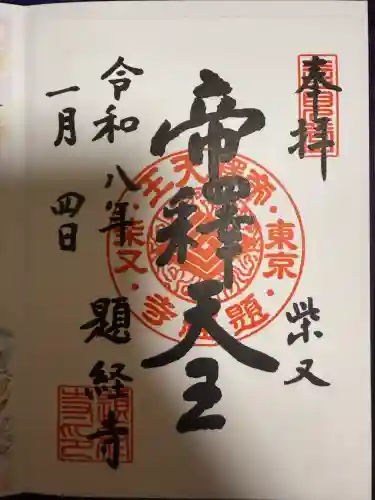 奉拝
柴又
帝釋天王
令和八年
一月四日
題経寺
帝釋天王・東京・題経寺・柴又・